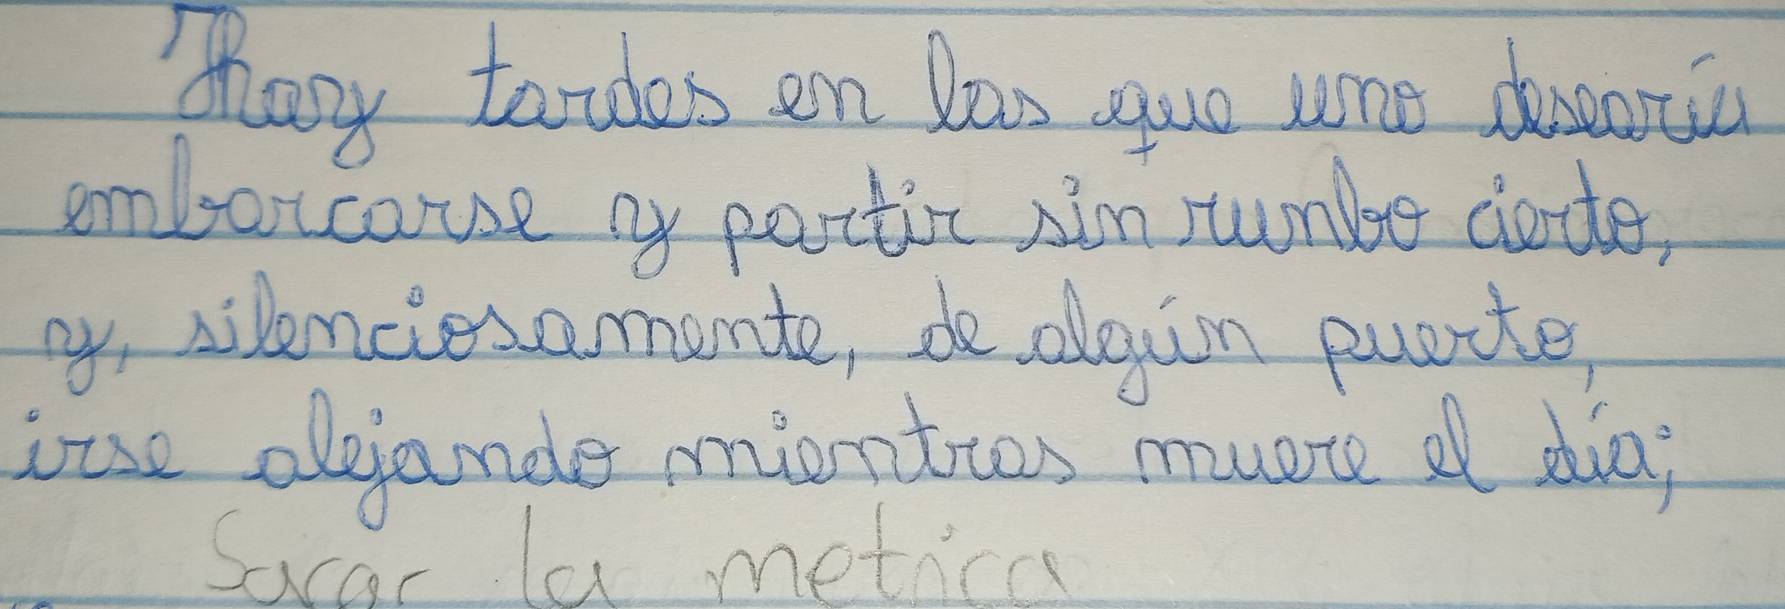 Hay tardes en las que uno desearía
embarcarse y partir sin rumbo cierto,
y, silenciosamente, de algún puerto,
irse alejando mientras muere el día;
Sacar la metrica